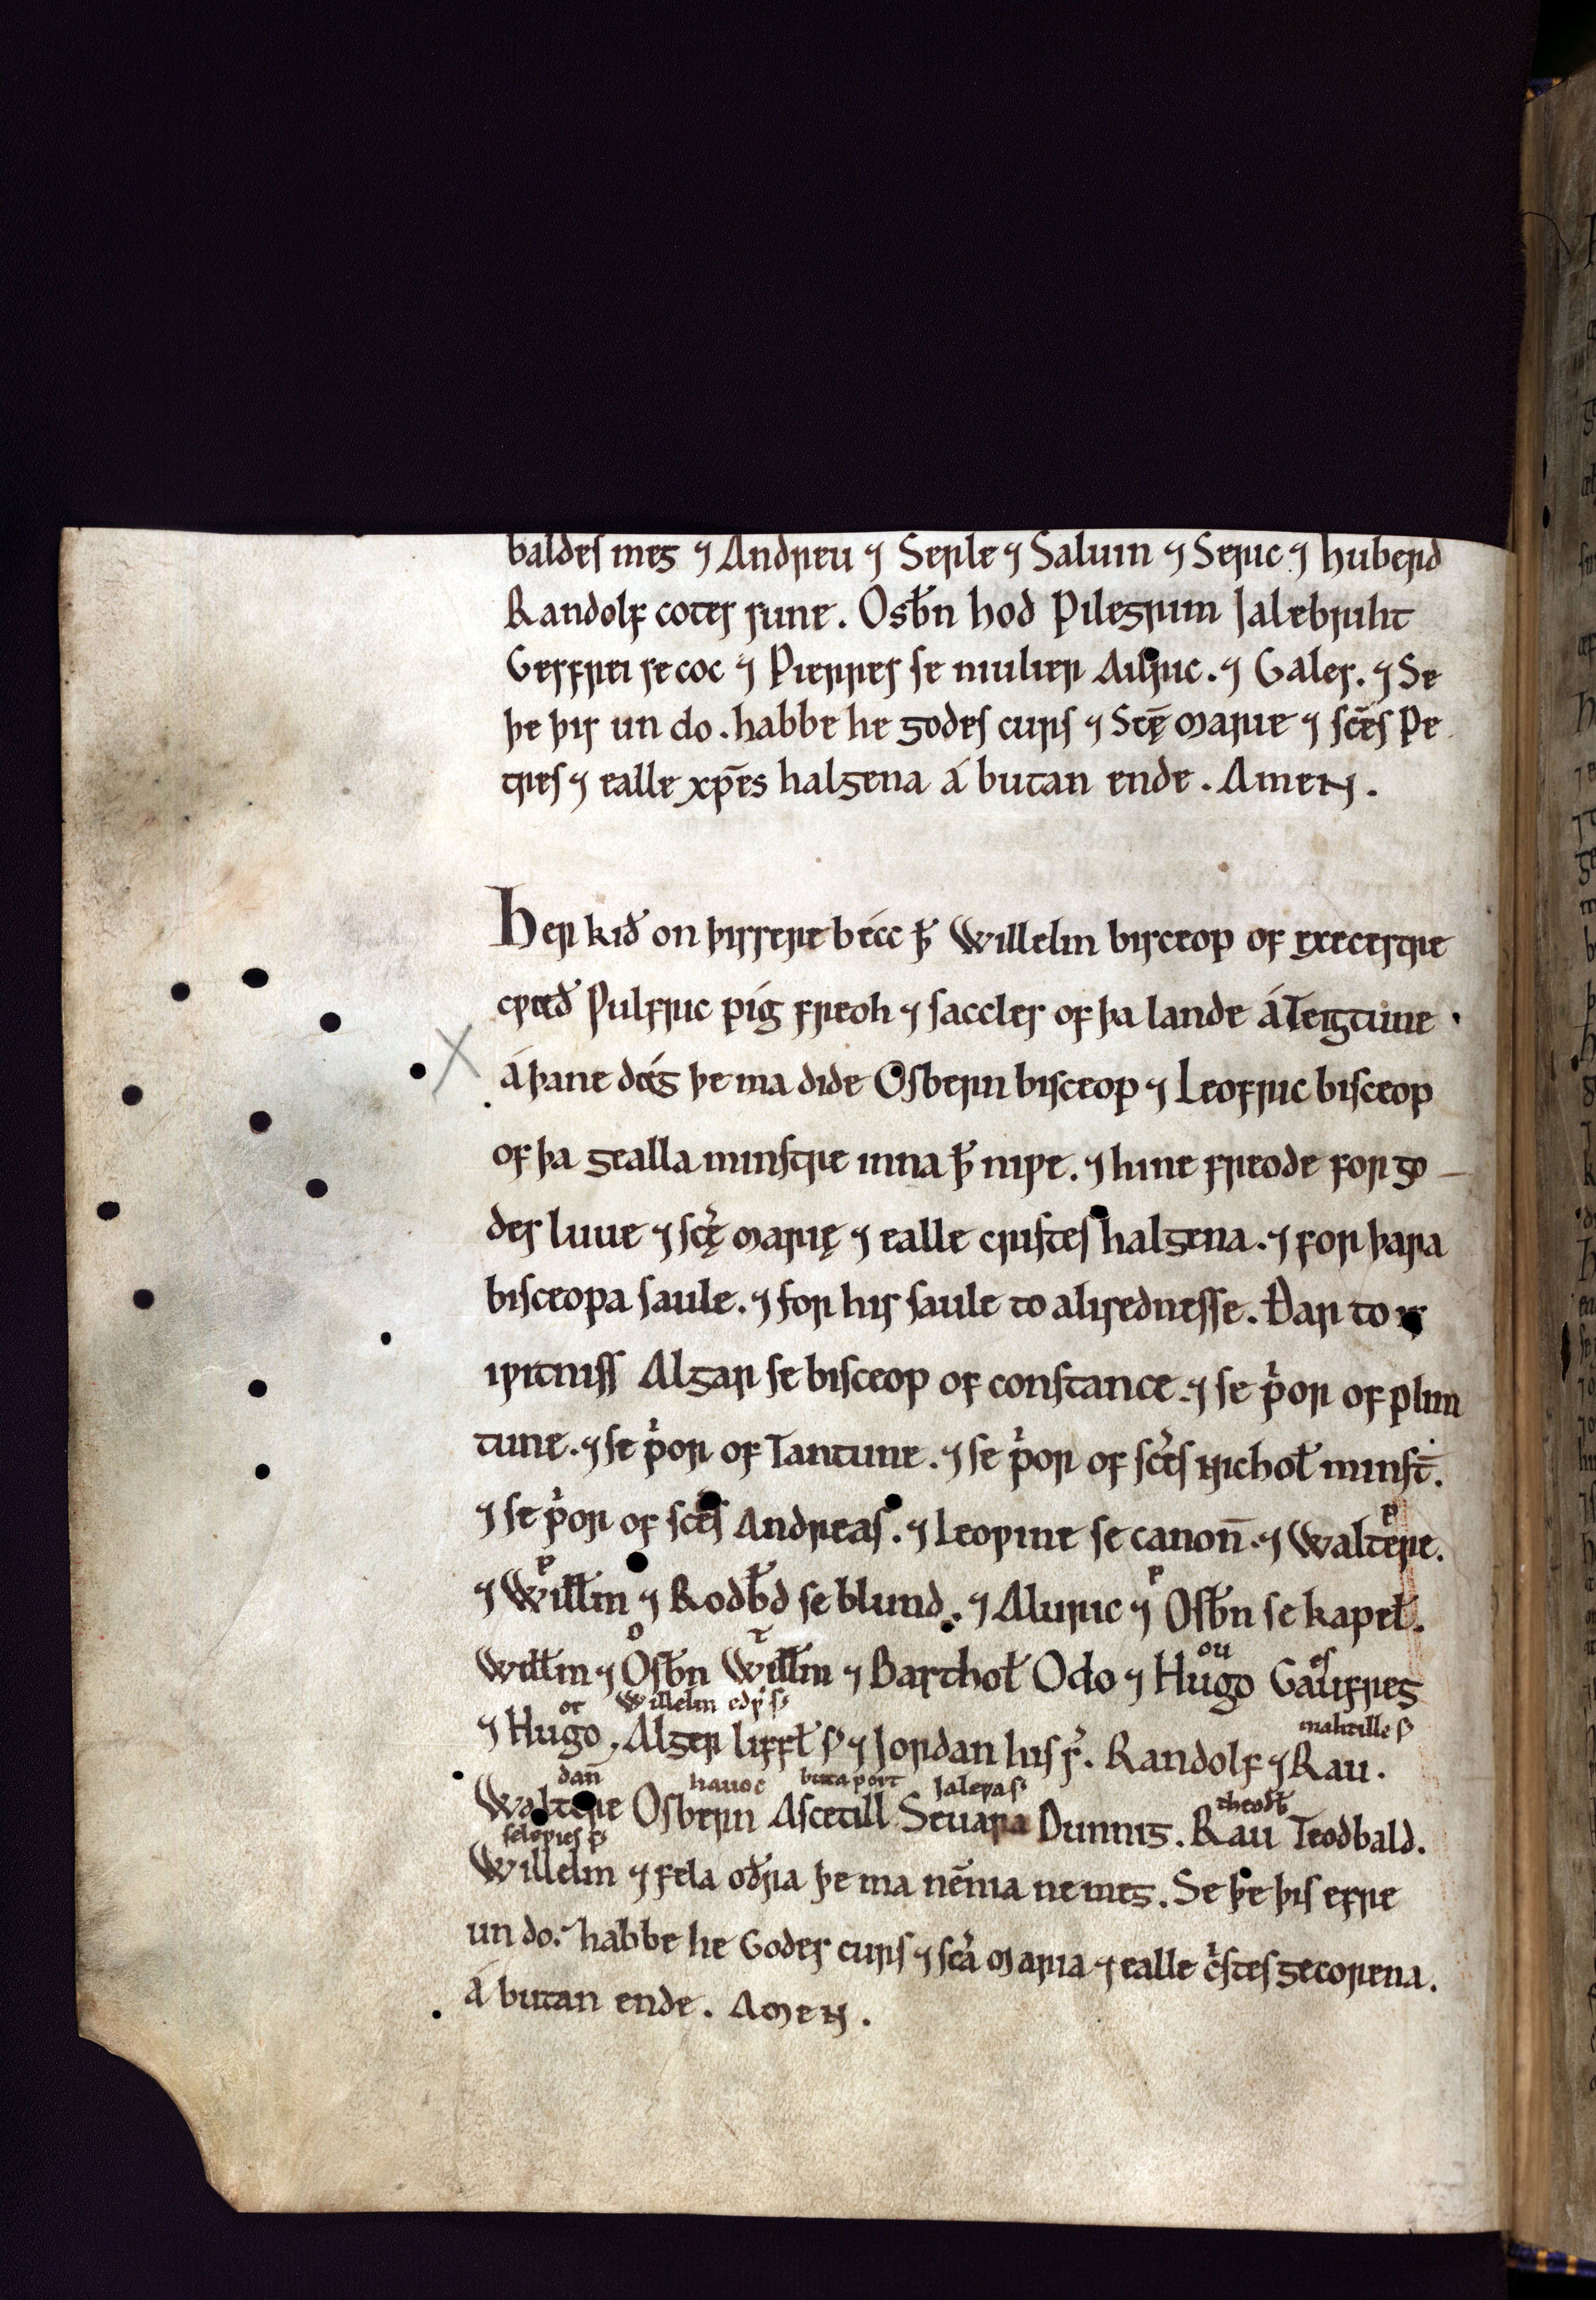 baldes meg ⁊ Andreu ⁊ Serle ⁊ Saluin ⁊ Seric ⁊ huberd
Randolf cotes sune. Osb̄n hod Pilegrim Jalebriht
Geffrei se coc ⁊ Pierres se mulier Ailric. ⁊ Gales. ⁊ Se
þe þis un do. habbe he godes curs ⁊ Sc̄ę Marie ⁊ sc̄es Pe
tres ⁊ ealle xp̄es halgena á butan ende. Amen.
Her kið on þissere bécc ꝥ Willelm bisceop of execestre
cƿæð Ƿulfric pig freoh ⁊ saccles of þa lande á Teigtune
á þane dæg þe ma dide Osbern bisceop ⁊ Leofric bisceop
of þa gealla minstre inna ꝥ niƿe. ⁊ hine freode for go
des luue ⁊ sc̄ę Marię ⁊ ealle cristes halgena. ⁊ for þara
bisceopa saule. ⁊ for his saule to alisednesse. Ðar to
iƿitniss Algar se bisceop of constance. ⁊ se p̓or of plim
tune. ⁊ se p̓or of Tantune. ⁊ se p̓or of sc̄es Nichoł minst̄.
⁊ se p̓or of sc̄es Andreas. ⁊ Leoƿine se canon̄. ⁊ Waltere. p
⁊ Wiłłm p ⁊ Rodb̄d se blund. ⁊ Aluric ⁊ Osb̄n p se kapeł.
Wiłłm ⁊ Osb̄n o Wiłłm t ⁊ Barthoł Odo ⁊ Hugo ou Gaufreg es
⁊ Hugo ot Willelm edƿ s̓ Alger liffł s̓ ⁊ Jordan his s̓. Randolf ⁊ Rau mahtille s̓.
Waltere dan̄ Osbern hauoc Ascetill butaport Seuara Jaleƿas̓ Dunnig. Rau theodb̄ Teodbald.
Willelm ⁊ fela oðra þe ma nēnia ne meg. Se þe þis efre
un do. habbe he Godes curs ⁊ sc̄a Maria ⁊ ealle c̓stes gecorena.
á butan ende. Amen.